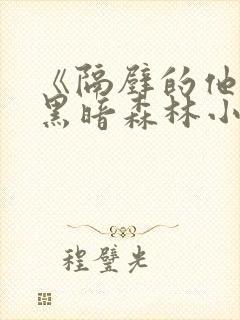 《隔壁的他
黑暗森林小
程璧光